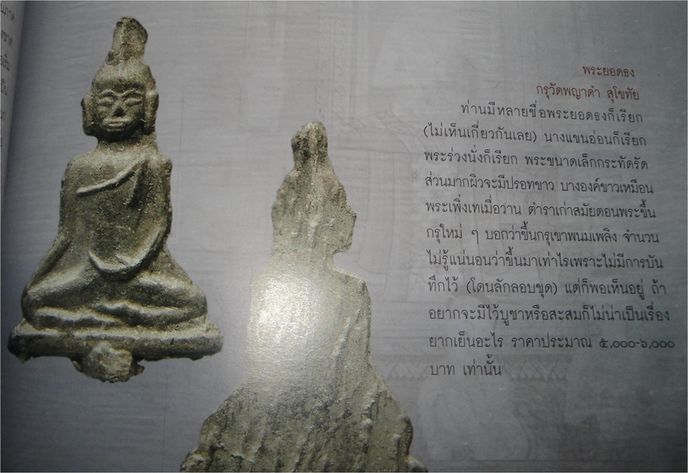 พระยอดธง
กรุวัดพญาดำ สุโขทัย
ท่านมีหลายชื่อพระยอดธงก็เรียก
(ไม่เห็นเกี่ยวกันเลย) นางแขนอ่อนก็เรียก
พระร่วงนั่งก็เรียก พระขนาดเล็กกระทัดรัด
ส่วนมากผิวจะมีปรอทขาว บางองค์ขาวเหมือน
พระเพิ่งเทเมื่อวาน ตำราเก่าสมัยตอนพระขึ้น
กรุใหม่ ๆ บอกว่าขึ้นกรุเขาพนมเพลิง จำนวน
ไม่รู้แน่นอนว่าขึ้นมาเท่าไรเพราะไม่มีการบัน
ทึกไว้ (โดนลักลอบขุด) แต่ก็พอเห็นอยู่ ถ้า
อยากจะมีไว้บูชาหรือสะสมก็ไม่น่าเป็นเรื่อง
ยากเย็นอะไร ราคาประมาณ ๕,๐๐๐-๖,๐๐๐
บาท เท่านั้น